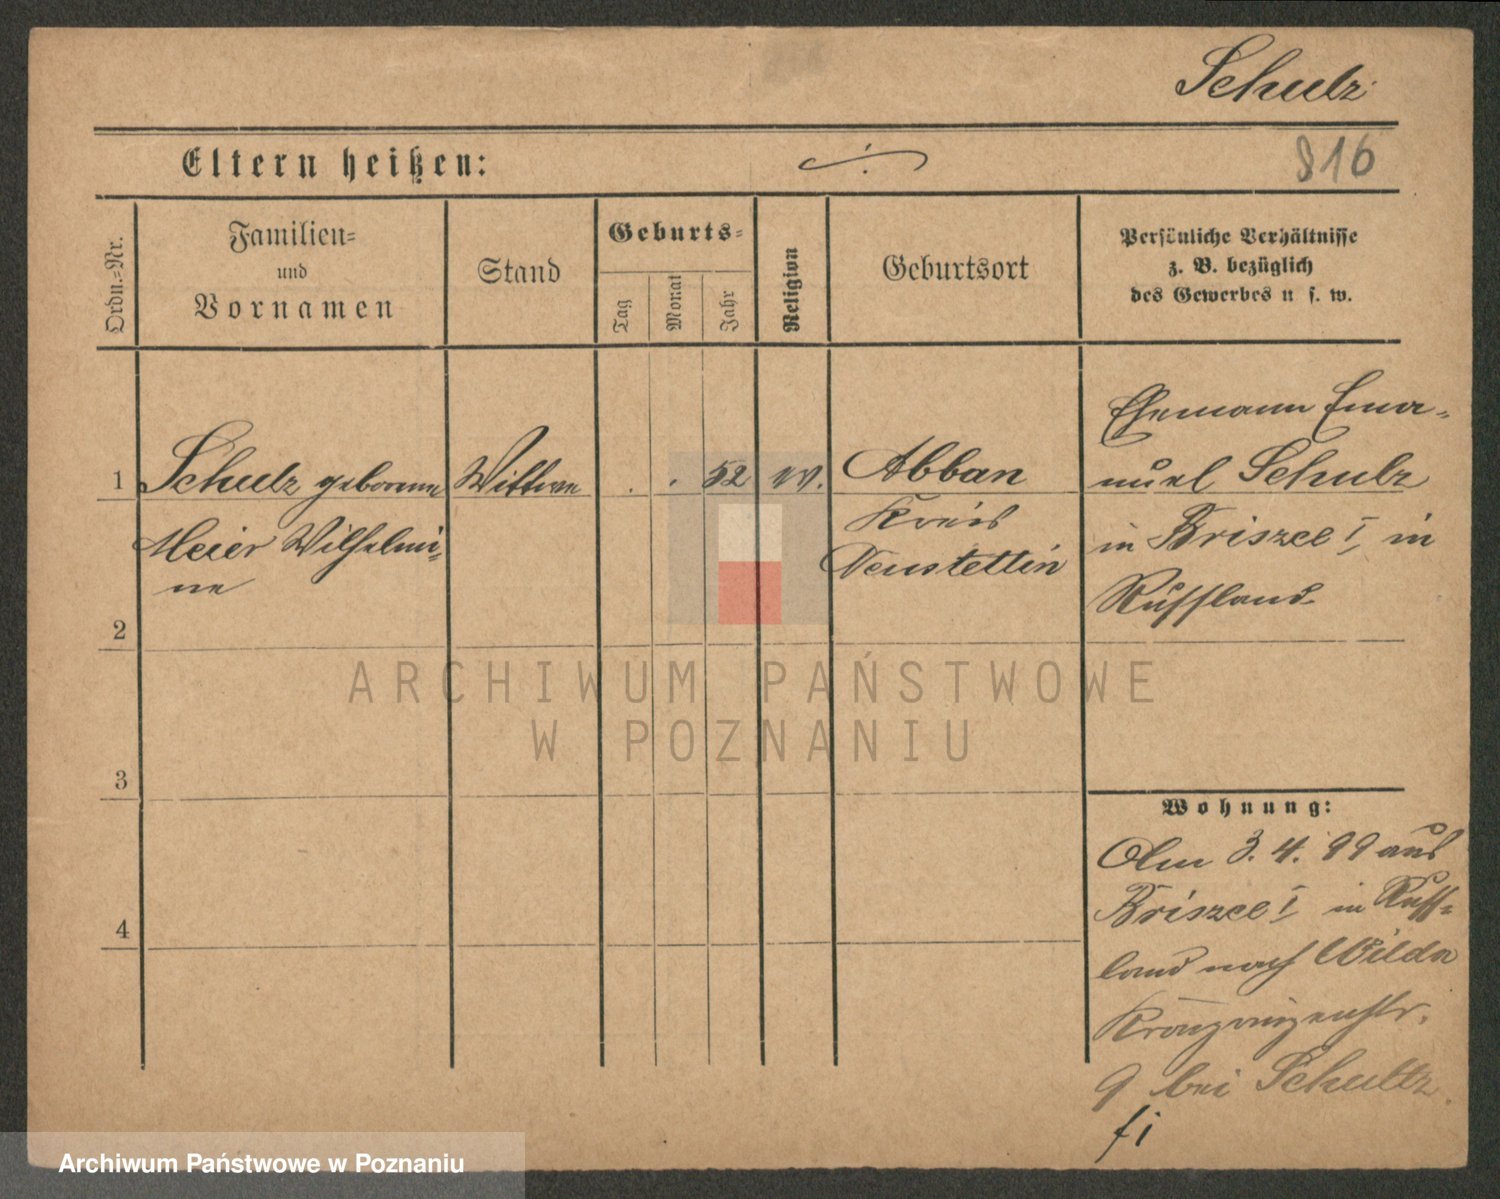 Schulz
Eltern heißen:
816
Ordn.=Nr.
Familien=
und
Vornamen
Stand
Geburts=
Tag
Monat
Jahr
Religion
Geburtsort
Persönliche Verhältnisse
z. B. bezüglich
des Gewerbes u s. w.
1
Schulz geborene
Meier Wilhelmi=
ne
Wittwe
. . 52
ev.
Abban
Kreis
Neustettin
Ehemann Ema=
nuel Schulz
in Briszee I, in
Russland
2
3
4
Wohnung:
Am 3. 4. 99 aus
Briszee I in Russ=
land nach Wilda
Kronprinzenstr.
9 bei Schultz.
ARCHIWUM PAŃSTWOWE
W POZNANIU
Archiwum Państwowe w Poznaniu